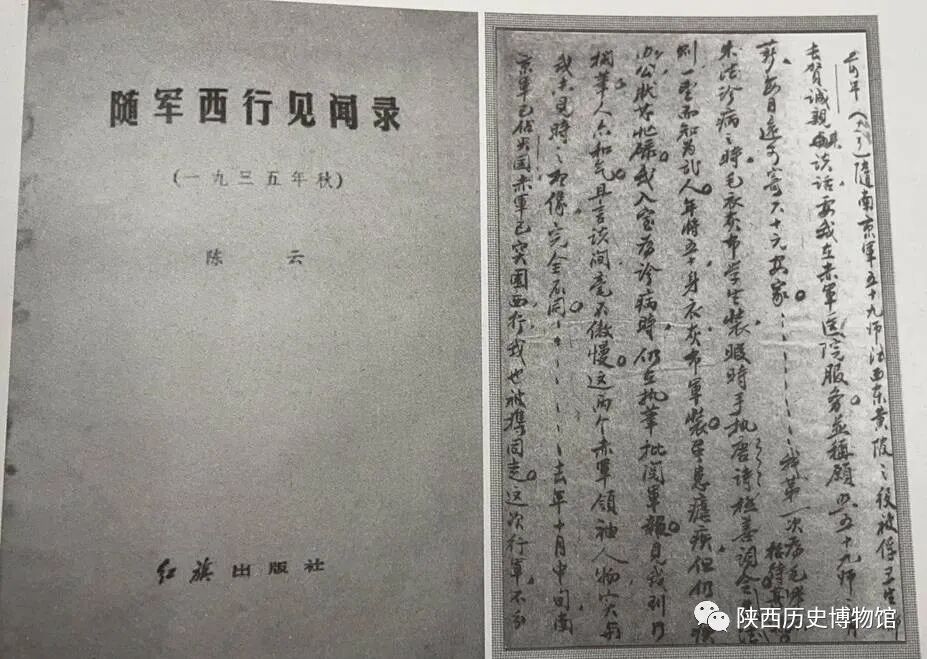 随军西行见闻录
(一九三五年秋)
陈 云
红旗出版社
随南京军五十九师于西东黄陂之役被俘卫生部
去贺诚亲 谈话要我在赤军医院服务并称愿 五十九师之月
薪每月还可寄六十元安家。 我第一次为毛泽
朱德诊病之时,毛衣灰布学生装,暇时手执唐诗极善词令
则一望而知为武人,年将五十,身衣灰布军装,虽患疟疾但仍
办公状甚忙碌我入室为诊病时,仍在执笔批阅军报,见我到乃
搁笔人亦和气且言谈间毫不傲慢这两个赤军领袖人物实与
我未见时之 像完全不同。 去年十月中旬南
京军已占兴国赤军已突围西行,我也被携同走。这次行军,不到
陕西历史博物馆